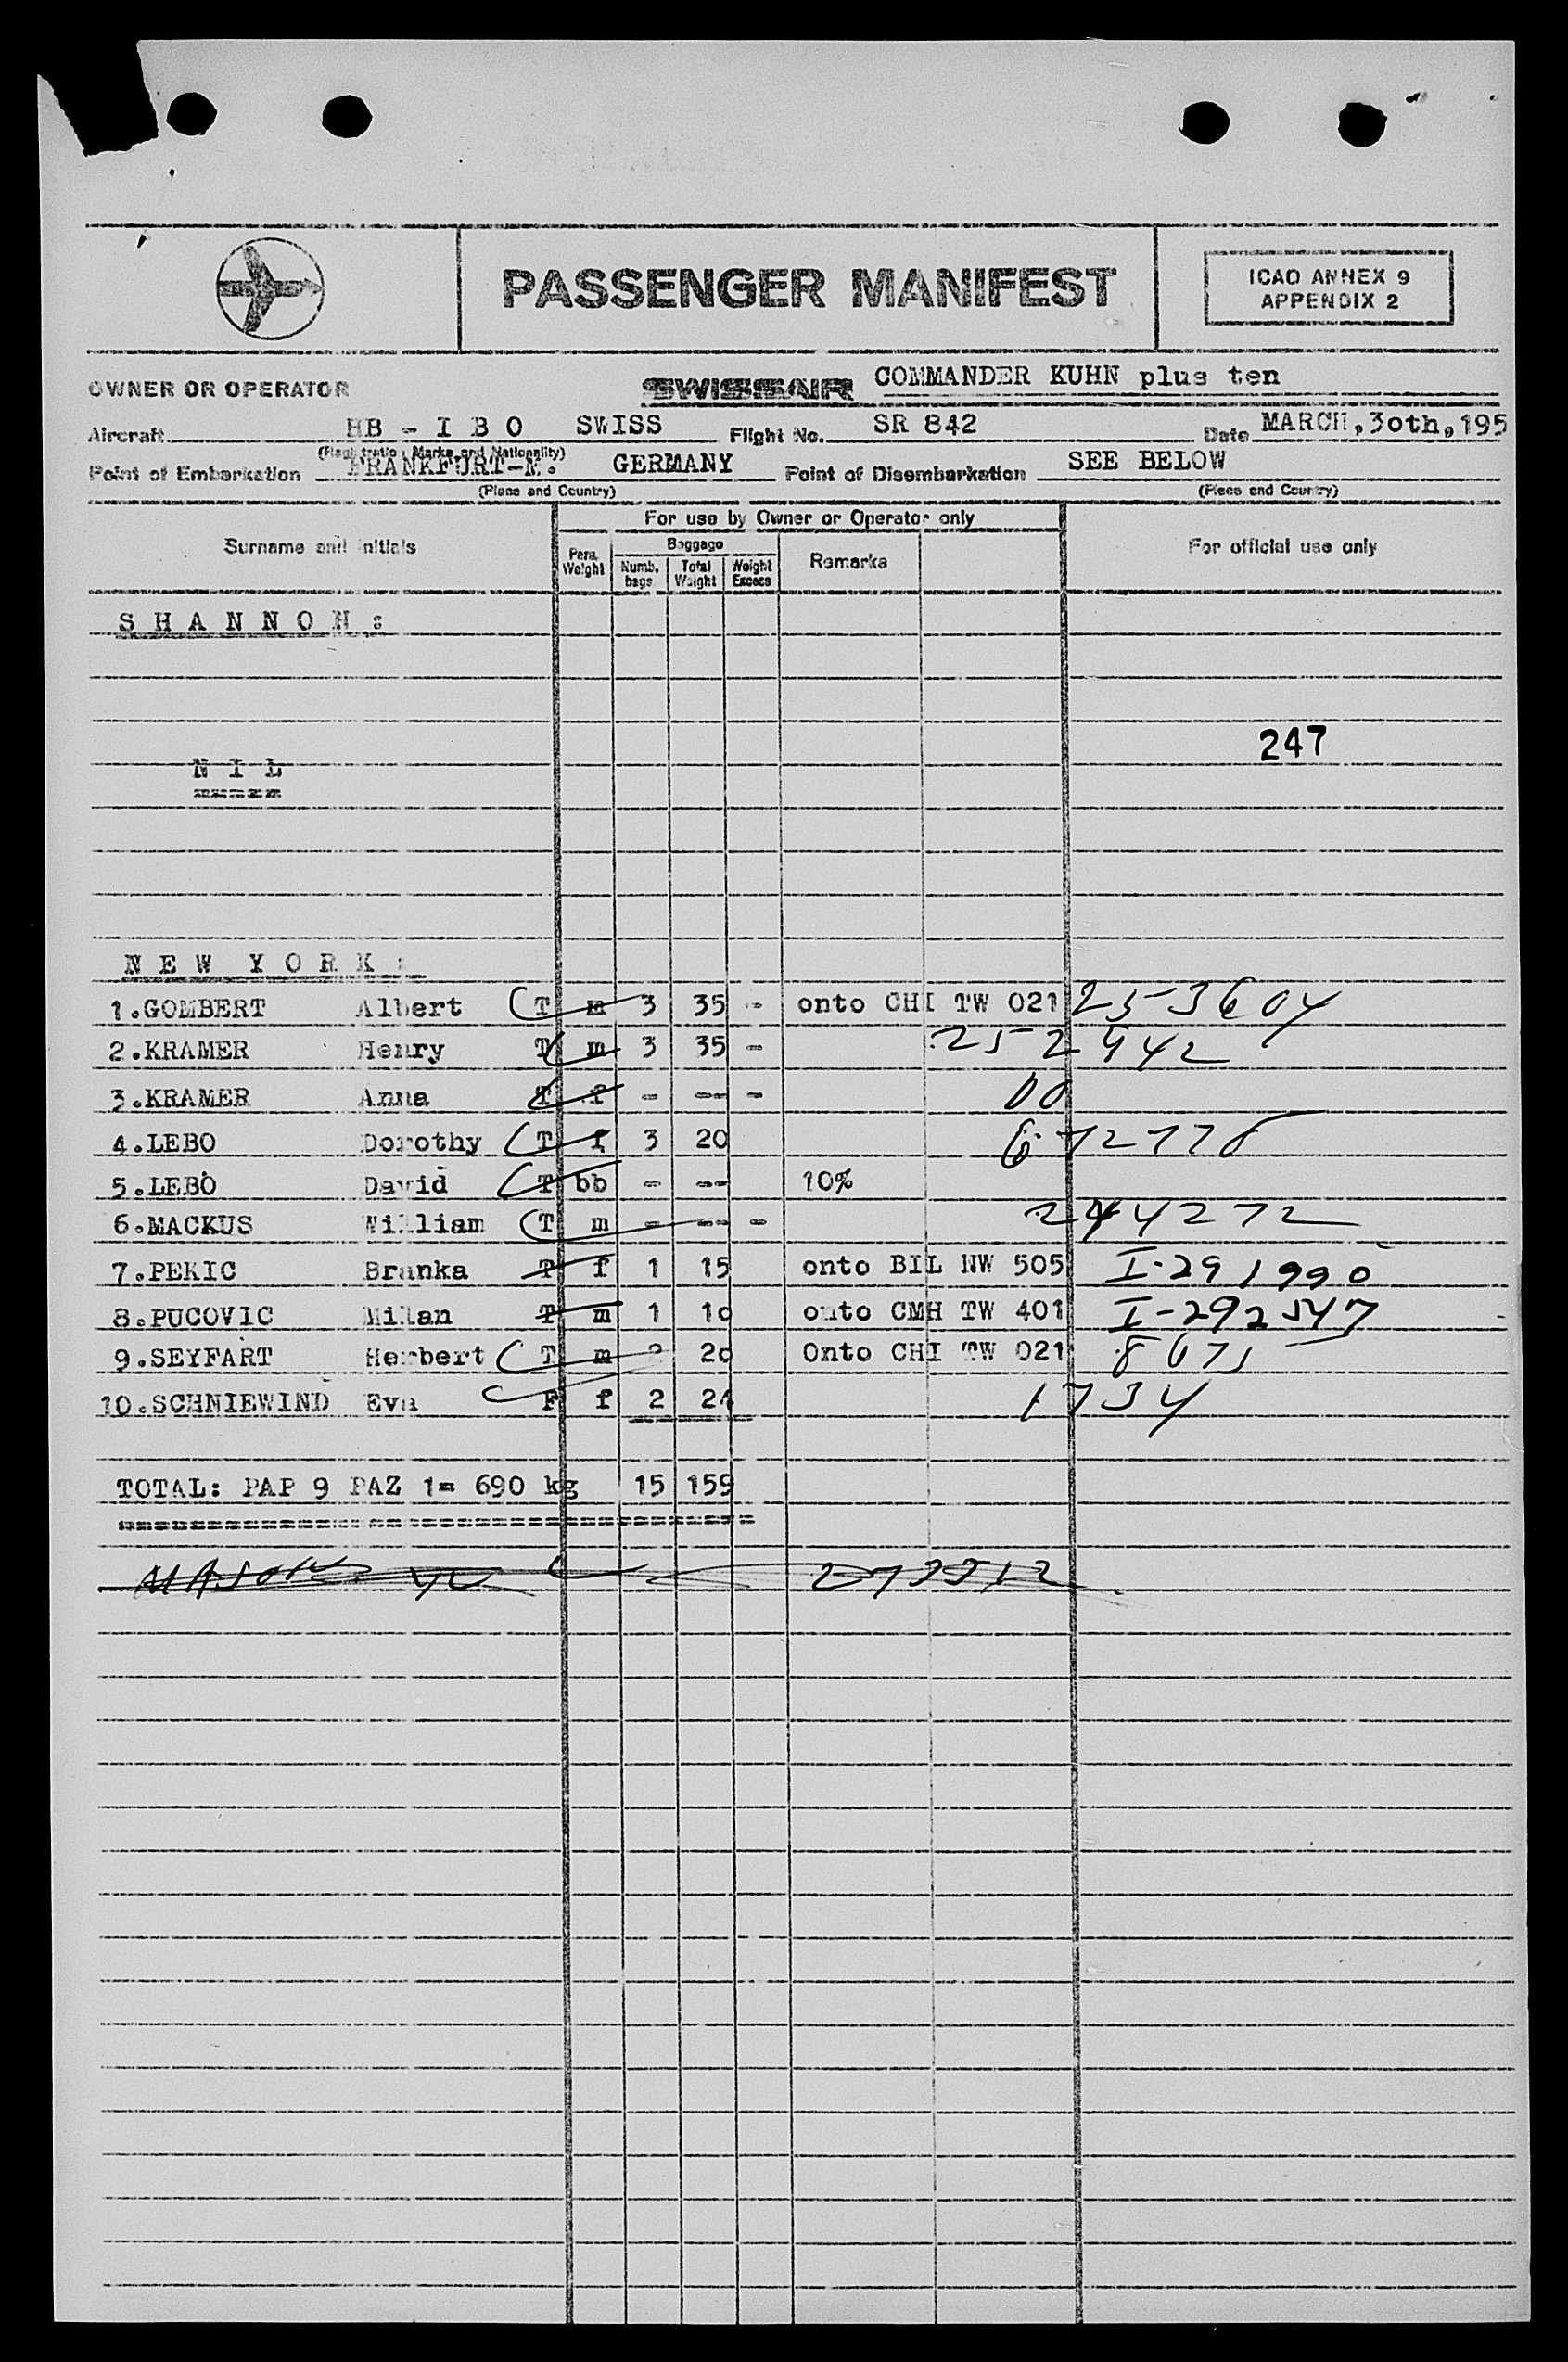 PASSENGER MANIFEST
ICAO ANNEX 9
APPENDIX 2
OWNER OR OPERATOR SWISSAIR COMMANDER KUHN plus ten
Aircraft HB - I B O SWISS Flight No. SR 842 Date MARCH,3oth,195
(Registration Marks and Nationality)
Point of Embarkation FRANKFURT-M. GERMANY Point of Disembarkation SEE BELOW
(Place and Country) (Place and Country)
For use by Owner or Operator only
Surname and initials Pers. Weight Baggage Remarks For official use only
Numb. bags Total Weight Weight Excess
S H A N N O N :
247
N I L
N E W Y O R K :
1.GOMBERT Albert T m 3 35 - onto CHI TW 021 253604
2.KRAMER Henry T m 3 35 - 252442
3.KRAMER Anna T f - -- -
4.LEBO Dorothy T f 3 20
5.LEBO David T bb - -- 10%
6.MACKUS William T m - -- - 244272
7.PEKIC Branka T f 1 15 onto BIL NW 505 I-291990
8.PUCOVIC Milan T m 1 10 onto CMH TW 401 I-292547
9.SEYFART Herbert T m 2 20 Onto CHI TW 021
10.SCHNIEWIND Eva F f 2 24 1734
TOTAL: PAP 9 PAZ 1= 690 kg 15 159